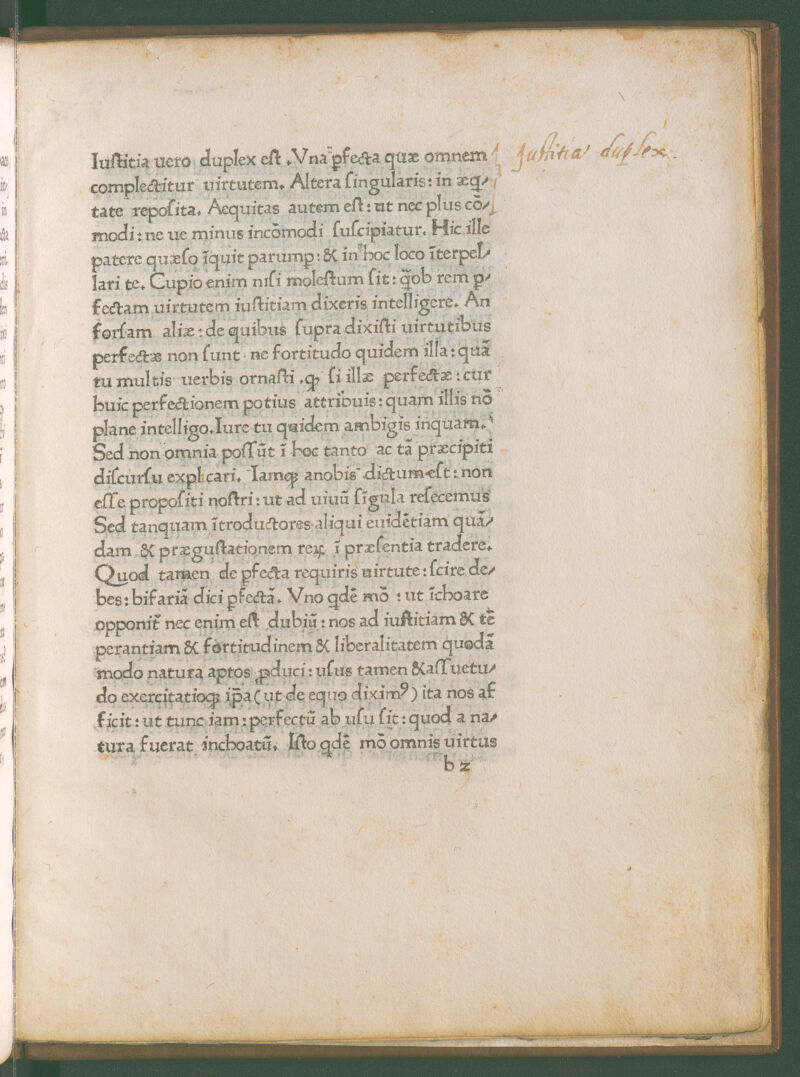 Iuſtitia uero duplex eſt .Vna ꝑfecta quæ omnem
Juſtitia duplex.
complectitur uirtutem. Altera ſingularis: in æq⸗
tate repoſita. Aequitas autem eſt: ut nec plus cō⸗
modi: ne ue minus incōmodi ſuſcipiatur. Hic ille
patere quæſo īquit parump: & in hoc loco īterpel⸗
lari te. Cupio enim niſi moleſtum ſit: q̄ob rem p⸗
fectam uirtutem iuſtitiam dixeris intelligere. An
forſam aliæ: de quibus ſupra dixiſti uirtutibus
perfectæ non ſunt· ne fortitudo quidem illa: quā
tu multis uerbis ornaſti .ꝙ ſi illæ perfectæ: cur
huic perfectionem potius attribuis: quam illis nō
plane intelligo. Iure tu quidem ambigis inquam.
Sed non omnia poſſūt ī hoc tanto ac tā præcipiti
diſcurſu explicari. Iamqꝫ anobis dictum eſt: non
eſſe propoſiti noſtri: ut ad uiuū ſigula reſecemus
Sed tanquam ītroductores aliqui euidētiam quā⸗
dam & præguſtationem reꝝ ī præſentia tradere.
Quod tamen de ꝑfecta requiris uirtute: ſcire de⸗
bes: bifariā dici ꝑfectā. Vno qdē mō : ut īchoare
opponit̄ nec enim eſt dubiū: nos ad iuſtitiam & tē
perantiam & fortitudinem & liberalitatem quodā
modo natura aptos ꝓduci: uſus tamen & aſſuetu⸗
do exercitatioqꝫ ip̄a ( ut de equo diximꝰ) ita nos af
ficit: ut tunc iam: perfectū ab uſu ſit: quod a na⸗
tura fuerat inchoatū. Iſto qdē mō omnis uirtus
b 2